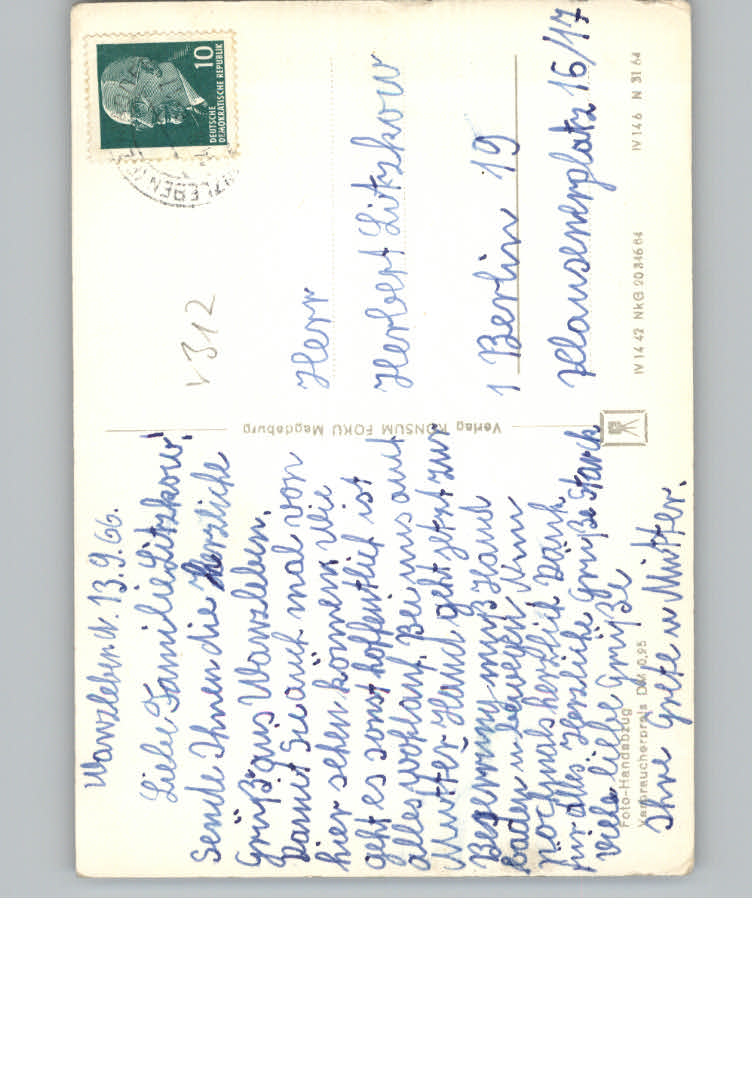 Wanzleben d. 13.9.66.
Liebe Familie Litzkow!
Sende Ihnen die herzliche
Grüße aus Wanzleben.
Damit Sie auch mal von
hier sehen können wie
geht es sonst hoffentlich ist
alles wohlauf. Bei uns auch
Mutter Hand geht jetzt zur
Besserung muß Hand
baden u. bewegen. Nun
Nochmals herzlich Dank
für alles Herzliche Grüße Starck
viele liebe Grüße
Ihre Grete u Mutter.
Foto-Handabzug
Verbraucherpreis DM 0,95
Verlag KONSUM FOKU Magdeburg
10
DEUTSCHE
DEMOKRATISCHE REPUBLIK
NZLEBEN
v 312
Herr
Herbert Litzkow
1 Berlin 19
Klausenerplatz 16/17
IV 14 42 NkG 20 346 64
IV 14 6 N 31 64